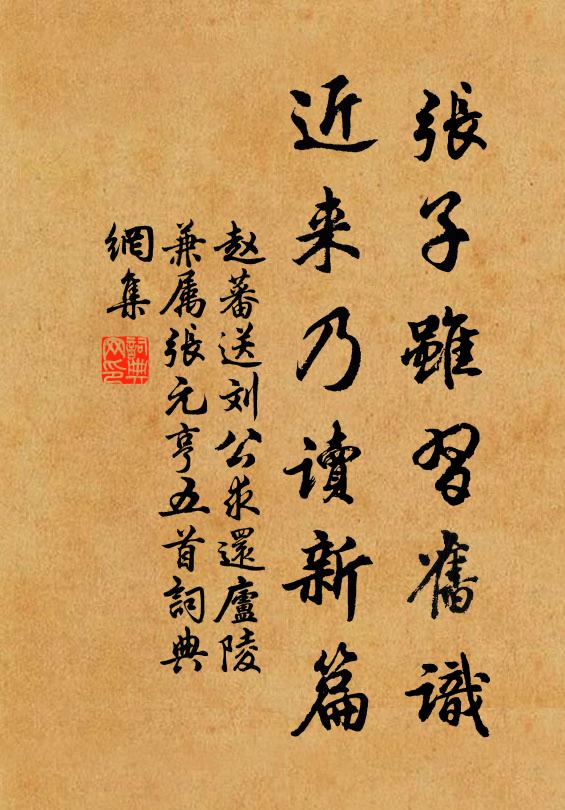 張子雖習舊識
近来乃讀新篇
赵蕃送刘公求還廬陵
兼属張元亨五首詞典
網集
詞典网印